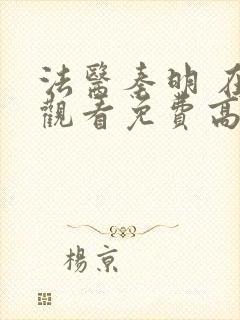 法醫秦明 在
觀看免費高
楊京